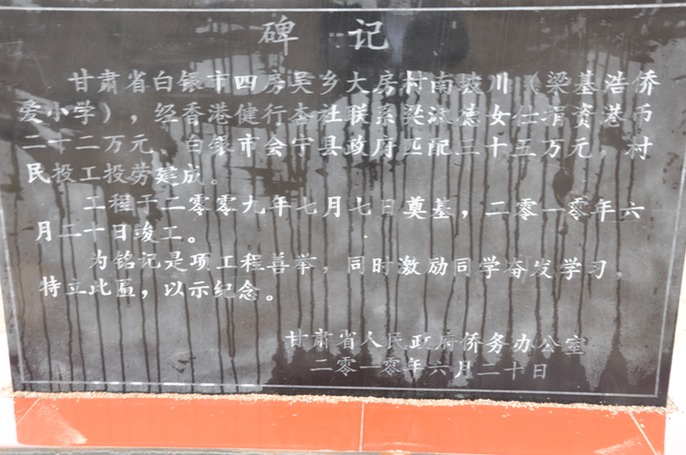 碑记
甘肃省白银市四房吴乡大房村南坡川（梁基浩侨
爱小学），经香港健行杏社联系梁洁德女仕捐资港币
二十二万元、白银市会宁县政府匹配三十五万元，村
民投工投劳建成。
工程于二零零九年七月七日奠基，二零一零年六
月二十日竣工。
为铭记是项工程善举，同时激励同学奋发学习，
特立此匾，以示纪念。
甘肃省人民政府侨务办公室
二零一零年六月二十日